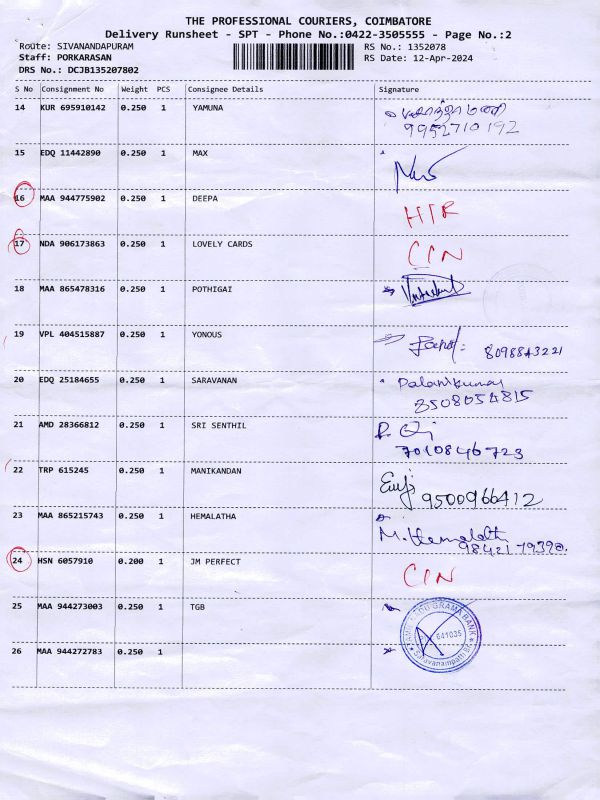 THE PROFESSIONAL COURIERS, COIMBATORE
Delivery Runsheet - SPT - Phone No.:0422-3505555 - Page No.:2
Route: SIVANANDAPURAM RS No.: 1352078
Staff: PORKARASAN RS Date: 12-Apr-2024
DRS No.: DCJB135207802
S No Consignment No Weight PCS Consignee Details Signature
14 KUR 695910142 0.250 1 YAMUNA
9952710192
15 EDQ 11442890 0.250 1 MAX
16 MAA 944775902 0.250 1 DEEPA HTR
17 NDA 906173863 0.250 1 LOVELY CARDS CIN
18 MAA 865478316 0.250 1 POTHIGAI
19 VPL 404515887 0.250 1 YONOUS 8098843221
20 EDQ 25184655 0.250 1 SARAVANAN Palanikumar
21 AMD 28366812 0.250 1 SRI SENTHIL
7010846723
22 TRP 615245 0.250 1 MANIKANDAN
9500966412
23 MAA 865215743 0.250 1 HEMALATHA
M. Hemalatha
24 HSN 6057910 0.200 1 JM PERFECT CIN
25 MAA 944273003 0.250 1 TGB
GRAMA BANK
641035
26 MAA 944272783 0.250 1